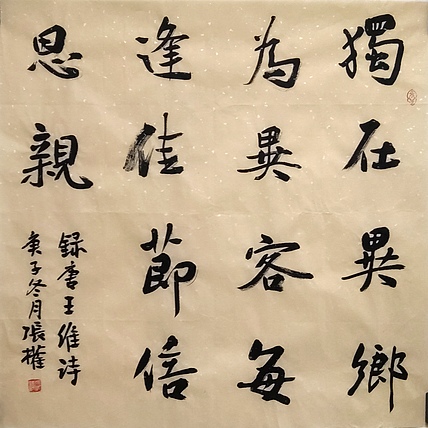 獨在異鄉
為異客每
逢佳節倍
思親
録唐王維诗
庚子冬月張